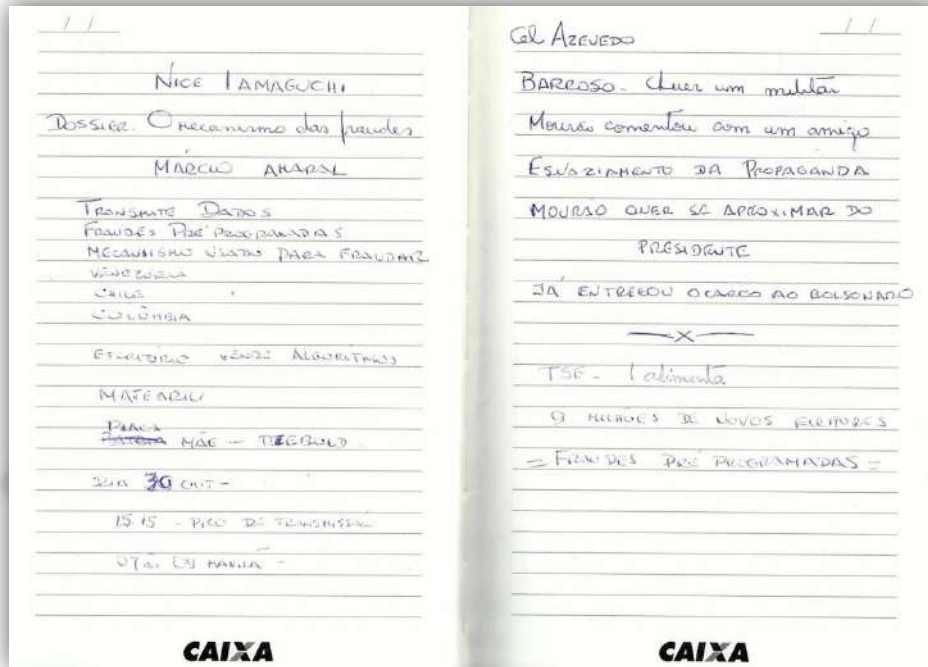 / /
NICE IAMAGUCHI
DOSSIER. O mecanismo das fraudes
MÁRCIO AMARAL
TRANSMITE DADOS
FRAUDES PRÉ PROGRAMADAS
MECANISMO USADO PARA FRAUDAR
VENEZUELA
CHILE
COLÔMBIA
ESCRITÓRIO VENDE ALGORÍTMOS
PLACA
MÃE - DIEBOLD
DIA 30
15:15 - PICO DE TRANSMISSÃO
DA MANHÃ -
CAIXA
/ /
Cel AZEVEDO
BARROSO - Quer um militar
Mourão comentou com um amigo
ESVAZIAMENTO DA PROPAGANDA
MOURÃO QUER SE APROXIMAR DO
PRESIDENTE
JÁ ENTREGOU O CARGO AO BOLSONARO
—X—
TSE - 1 alimenta
9 MILHÕES DE NOVOS ELEITORES
= FRAUDES PRÉ PROGRAMADAS =
CAIXA